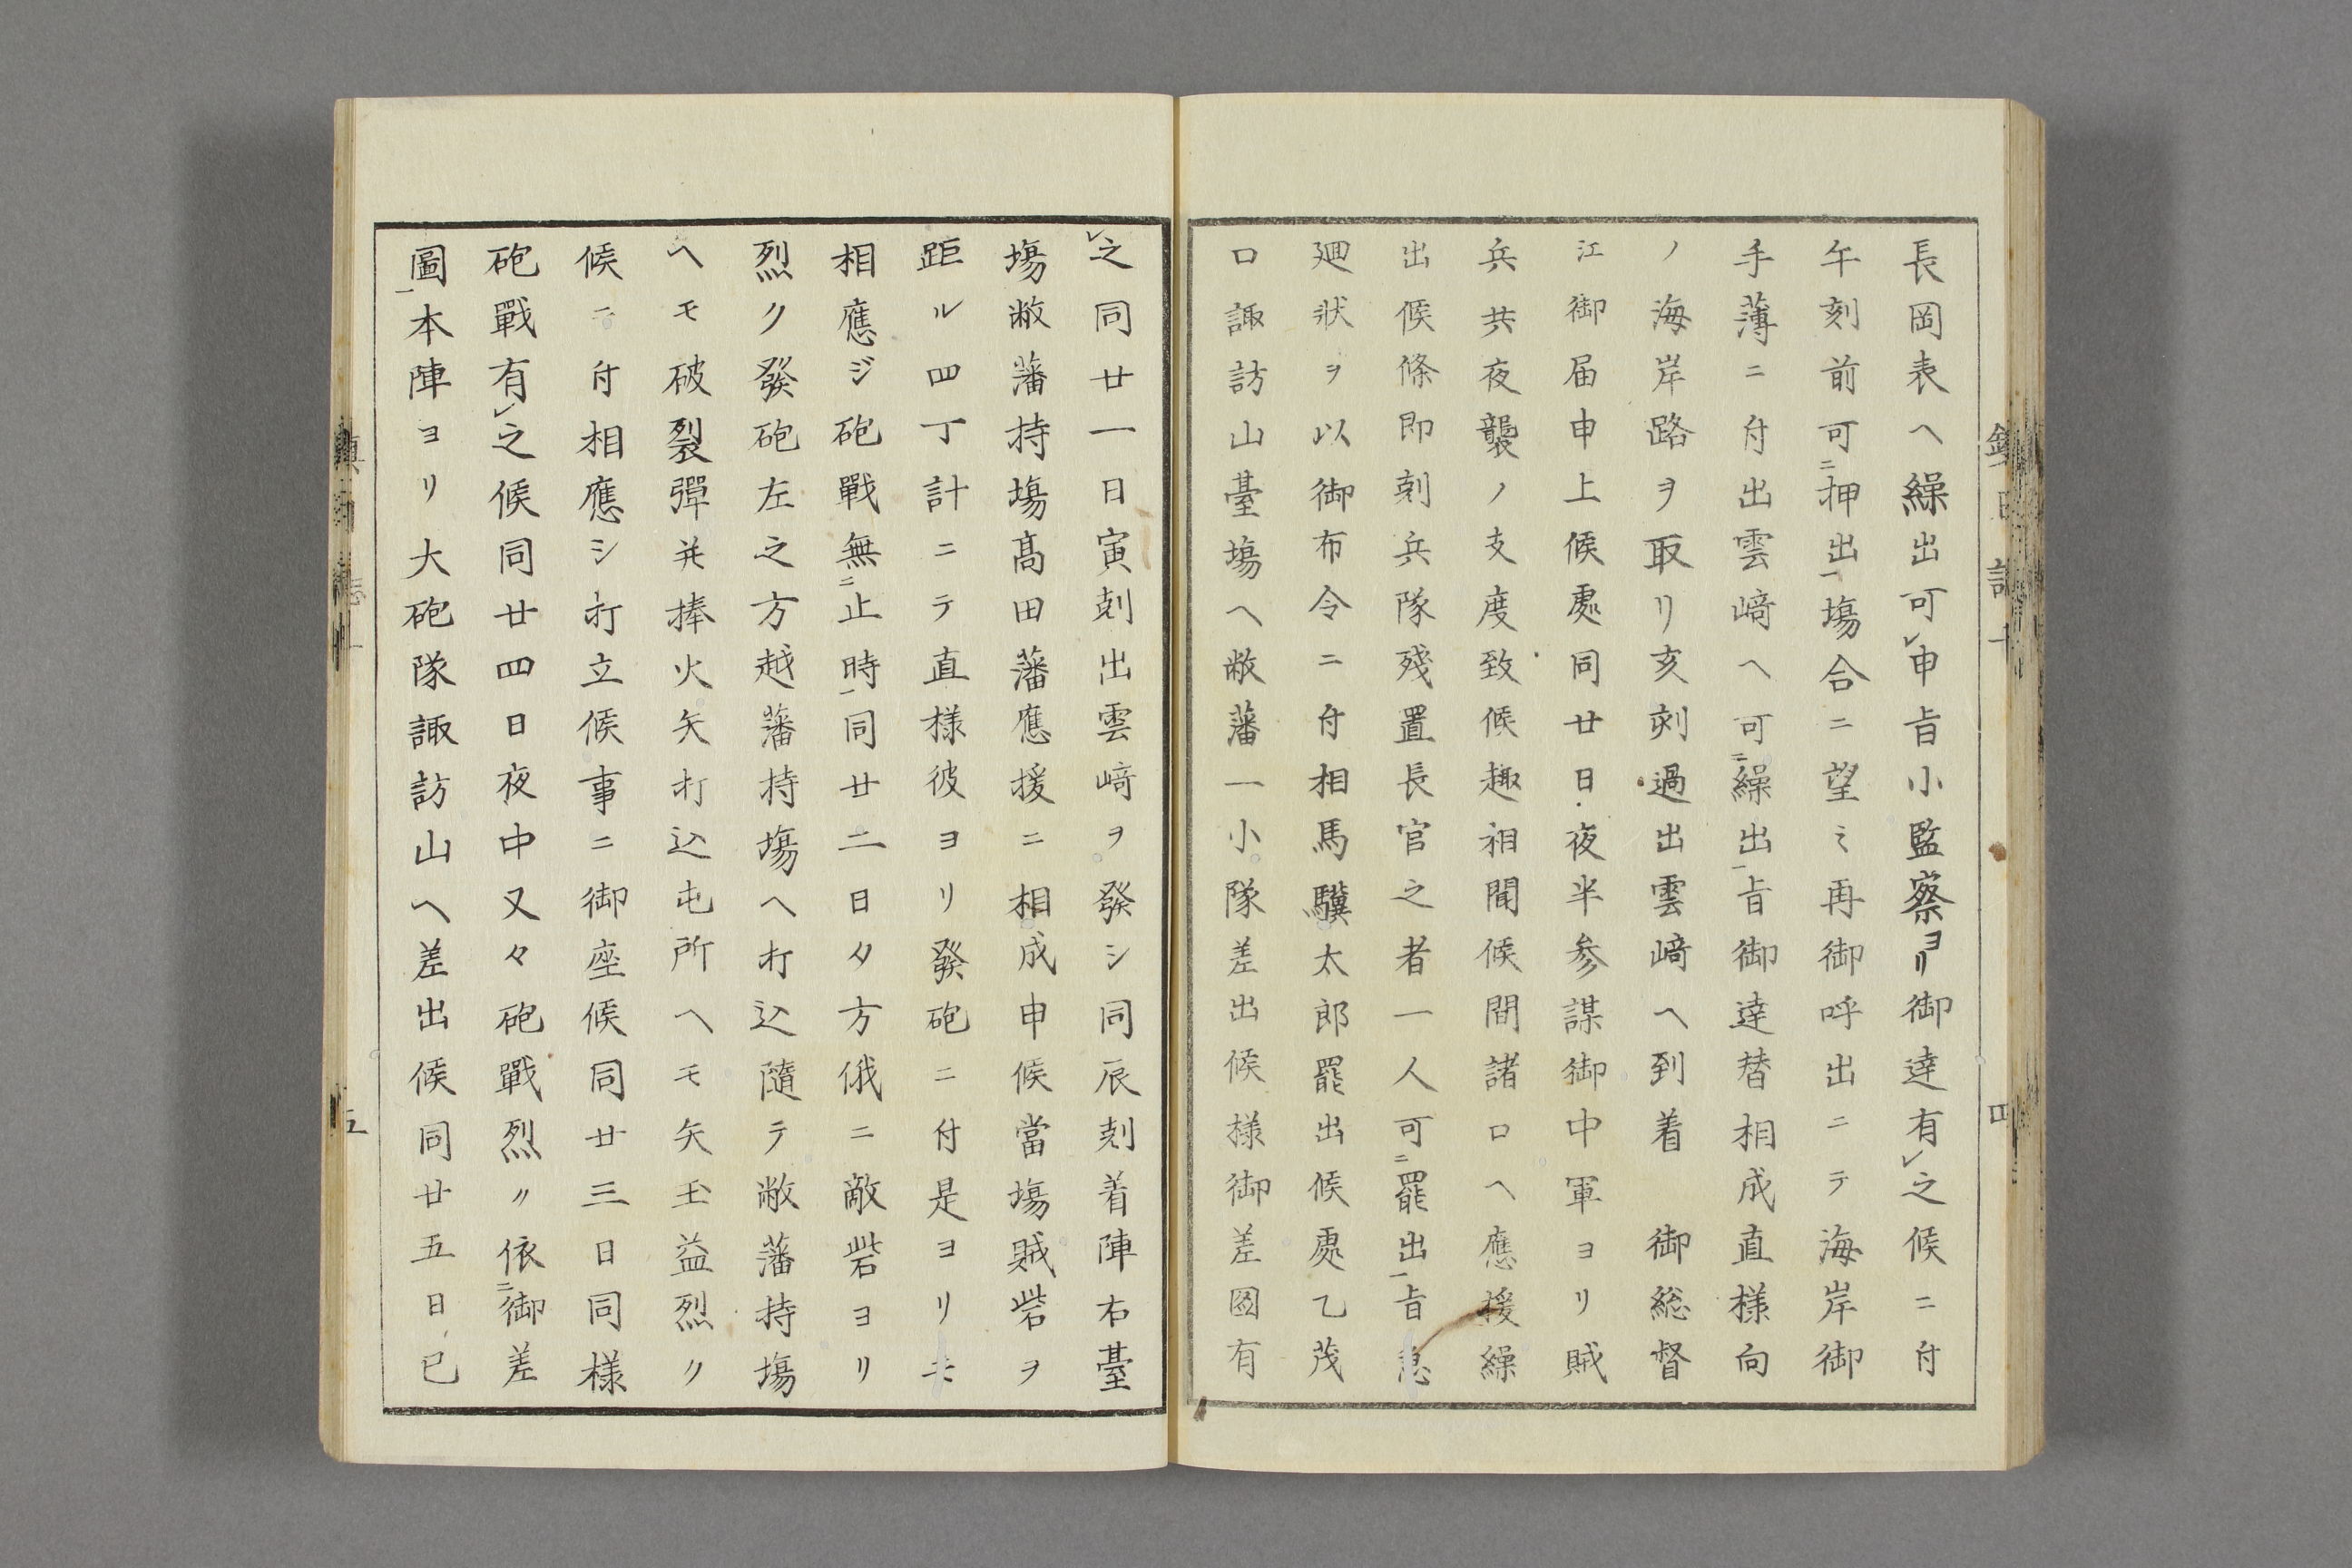 長岡表ヘ繰出可㆑申旨小監察ヨリ御達有㆑之候ニ付
午刻前可㆓押出㆒塲合ニ望ミ再御呼出ニテ海岸御
手薄ニ付出雲﨑ヘ可㆓繰出㆒旨御達替相成直様向
ノ海岸路ヲ取リ亥刻過出雲﨑ヘ到着　御総督
江御届申上候處同廿日夜半参謀御中軍ヨリ賊
兵共夜襲ノ支度致候趣相聞候間諸口ヘ應援繰
出候條即刻兵隊殘置長官之者一人可㆓罷出㆒旨急
廻狀ヲ以御布令ニ付相馬驥太郎罷出候處乙茂
口諏訪山臺塲ヘ敝藩一小隊差出候様御差図有
㆑之同廿一日寅刻出雲﨑ヲ發シ同辰刻着陣右臺
塲敝藩持塲髙田藩應援ニ相成申候當塲賊砦ヲ
距ル四丁計ニテ直様彼ヨリ發砲ニ付是ヨリモ
相應ジ砲戰無㆓止時㆒同廿二日夕方俄ニ敵砦ヨリ
烈ク發砲左之方越藩持塲ヘ打込隨テ敝藩持塲
ヘモ破裂彈并捧火矢打込屯所ヘモ矢玉益烈ク
候ニ付相應シ打立候事ニ御座候同廿三日同様
砲戰有㆑之候同廿四日夜中又々砲戰烈〃依㆓御差
圖㆒本陣ヨリ大砲隊諏訪山ヘ差出候同廿五日已
四
五